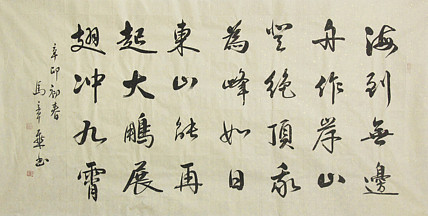 海到無邊
舟作岸山
登絕頂我
為峰如日
東山能再
起大鵬展
翅冲九霄
辛卯初春
馬章书